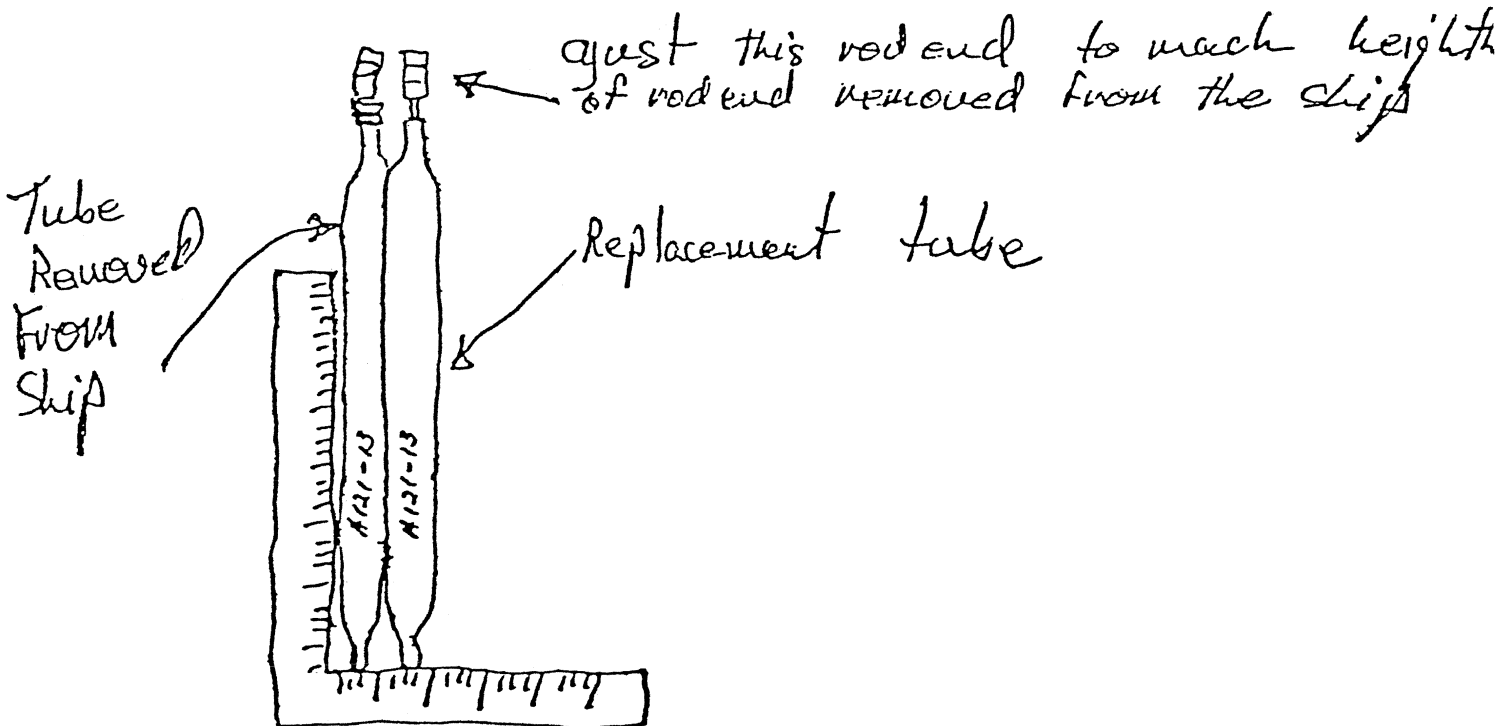 ajust this rod end to mach heighth
of rod end removed from the ship
Tube
Removed
From
Ship
Replacement tube
A121-13
A121-13